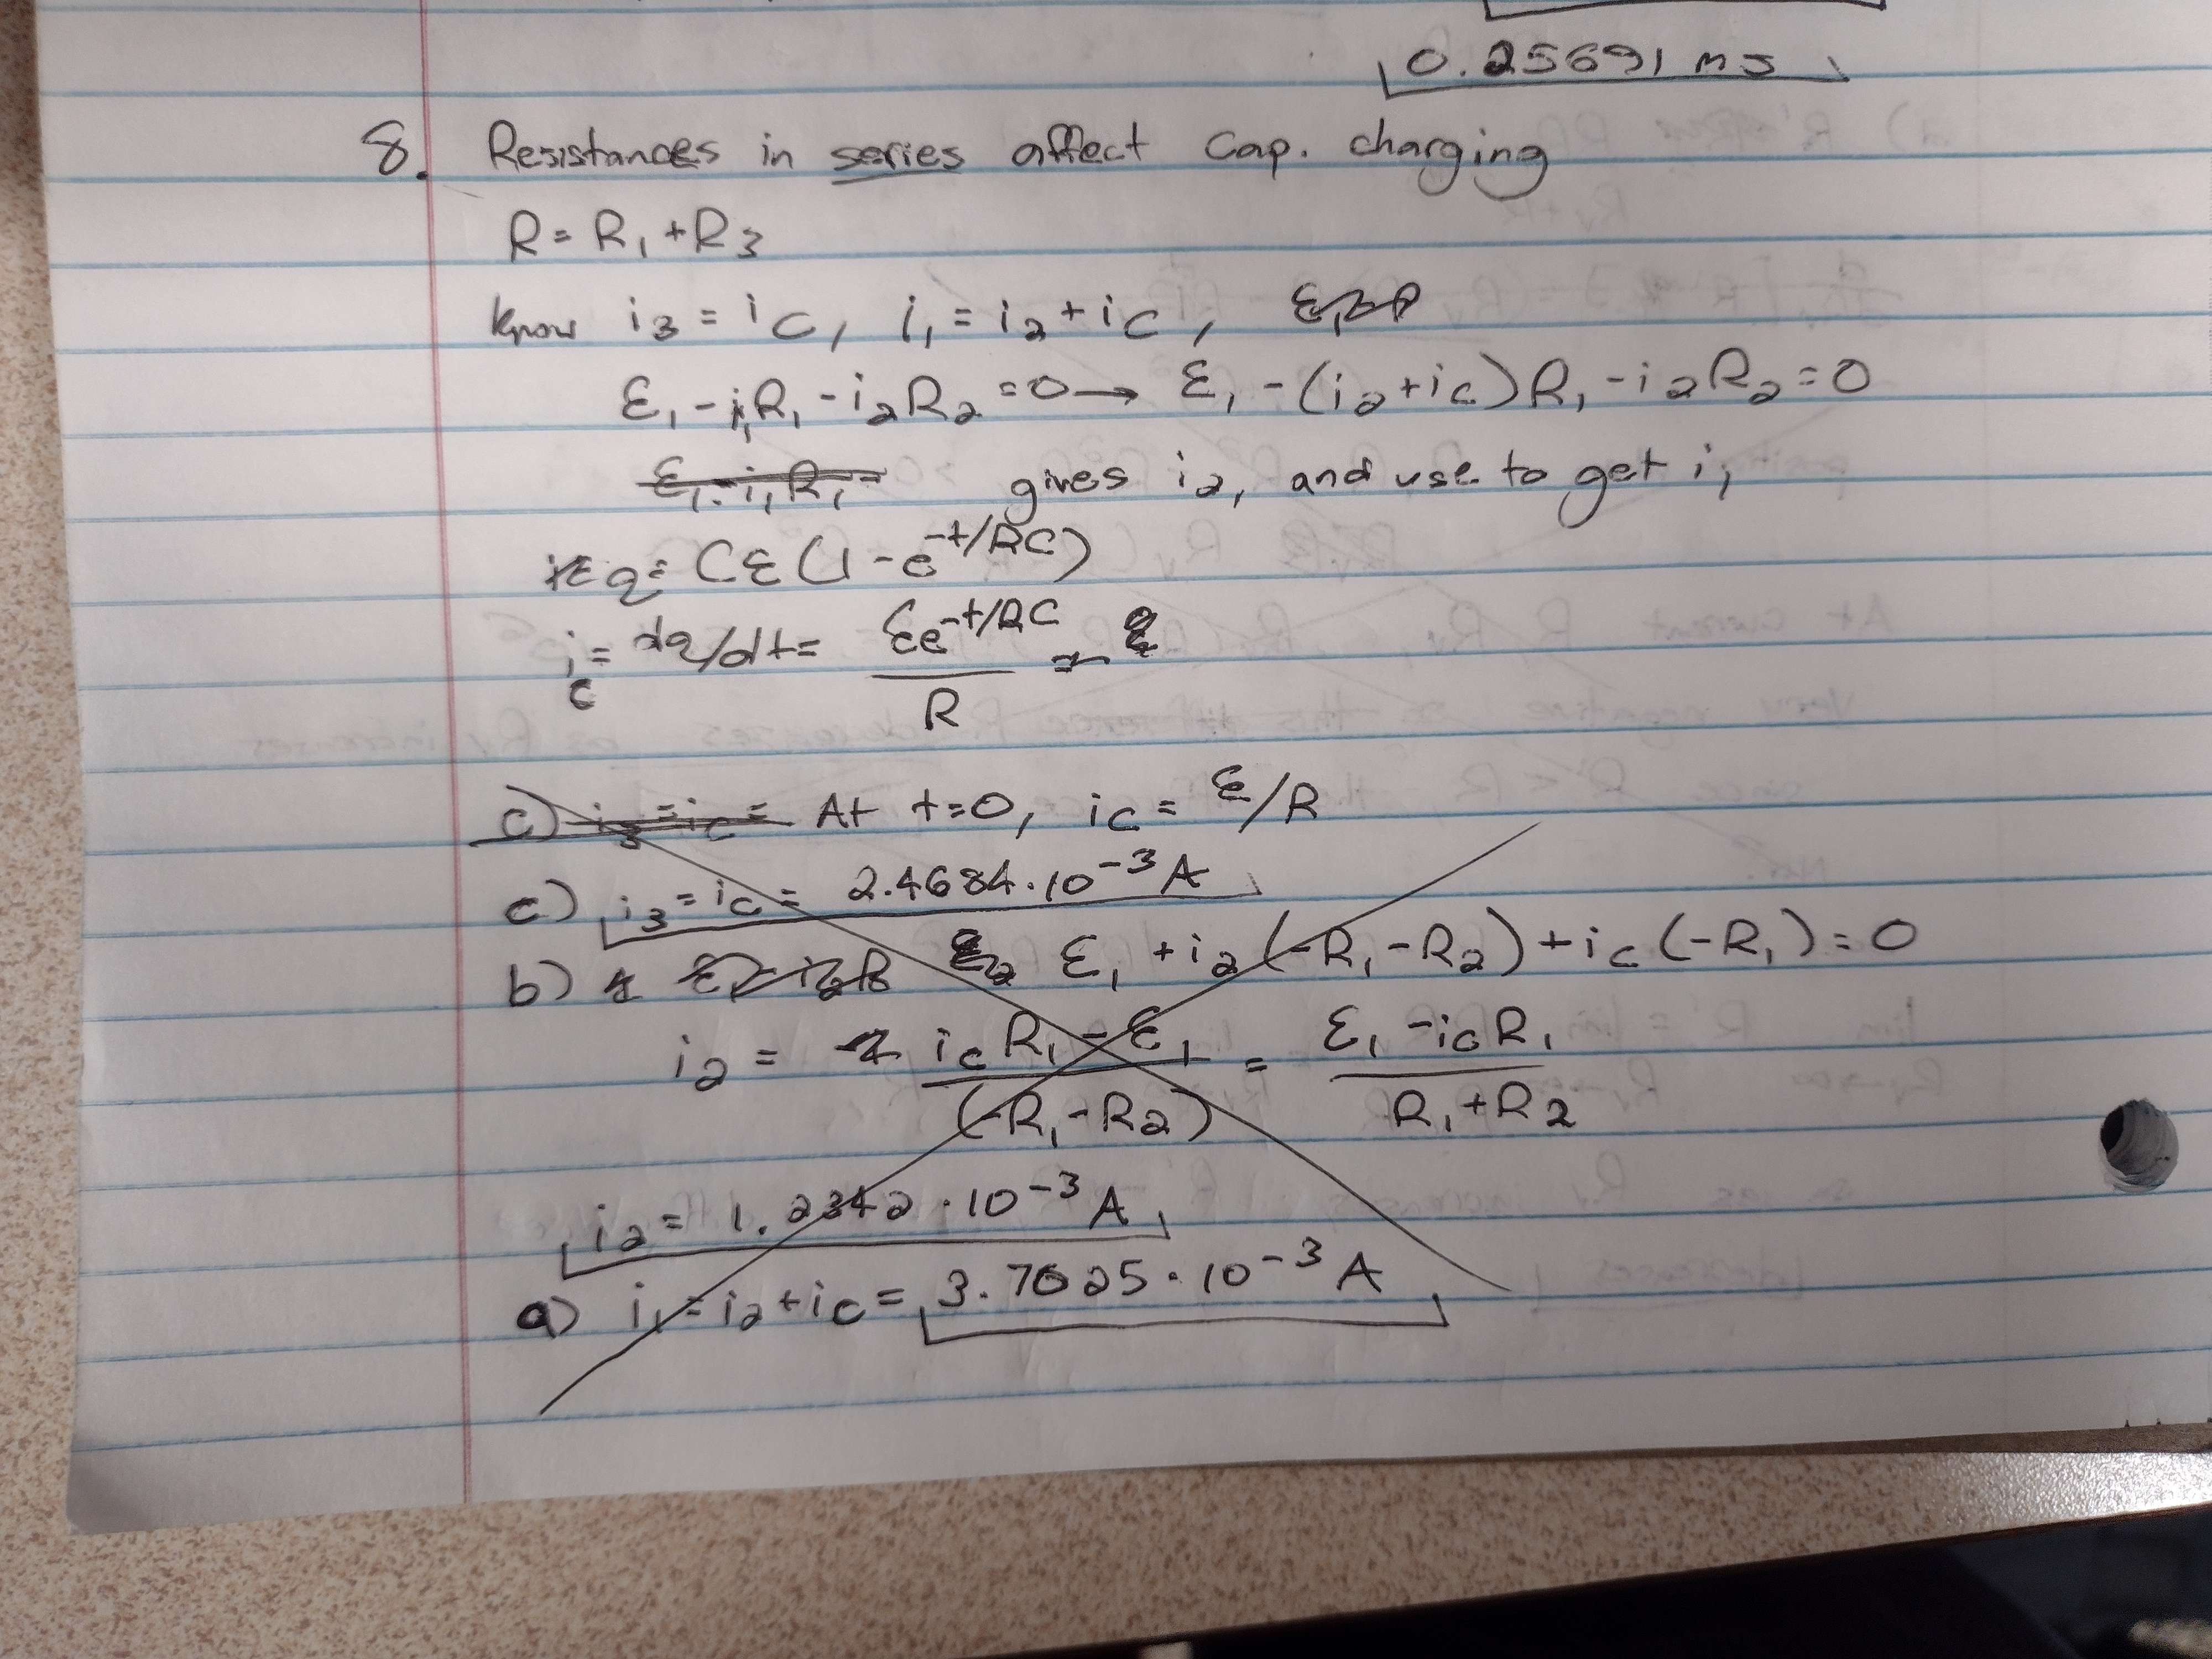 0.25691 ms
8. Resistances in series affect cap. charging
R = R₁ + R₃
know i₃ = i_C, i₁ = i₂ + i_C,
ε₁ - i₁R₁ - i₂R₂ = 0 → ε₁ - (i₂ + i_C)R₁ - i₂R₂ = 0
ε₁ - i₁R₁ = gives i₂, and use to get i₁
q = Cε(1 - e^(-t/RC))
i_C = dq/dt = εe^(-t/RC) / R
c) i₃ = i_C = At t=0, i_C = ε/R
c) i₃ = i_C = 2.4684·10⁻³ A
b) ε₁ + i₂(-R₁-R₂) + i_C(-R₁) = 0
i₂ = (i_C R₁ - ε₁) / (-R₁-R₂) = (ε₁ - i_C R₁) / (R₁+R₂)
i₂ = 1.2342·10⁻³ A
a) i₁ = i₂ + i_C = 3.7025·10⁻³ A